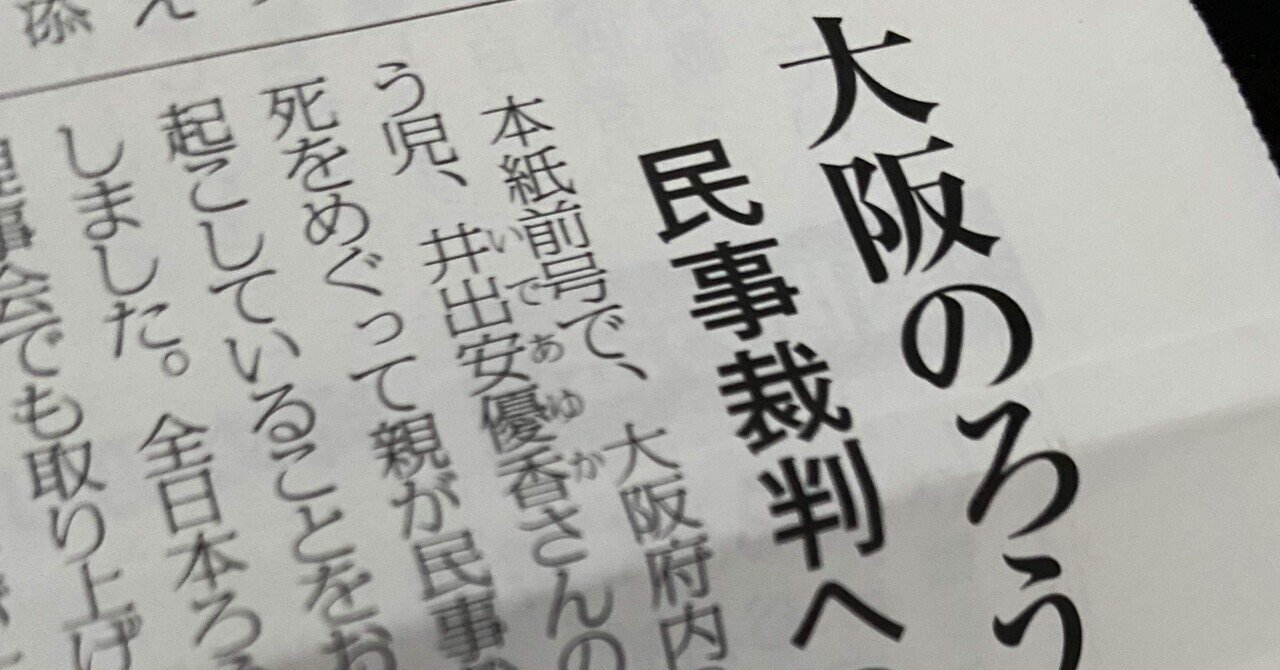 大阪のろう
民事裁判へ
本紙前号で、大阪府内
う児、井出安優香さんの
いであゆか
死をめぐって親が民事
起こしていることをお
しました。全日本ろ
理事会でも取り上げ
添え